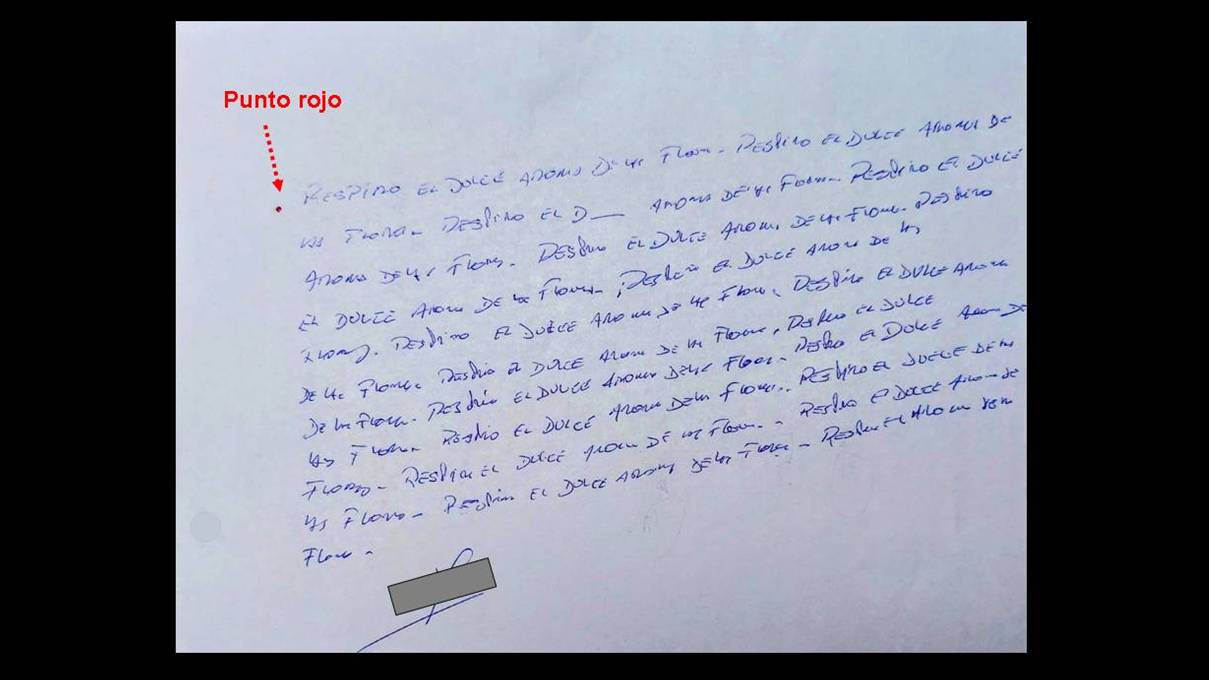 Punto rojo
RESPIRO EL DULCE AROMA DE LAS FLORES - RESPIRO EL DULCE AROMA DE
LAS FLORES - RESPIRO EL D___ AROMA DE LAS FLORES - RESPIRO EL DULCE
AROMA DE LAS FLORES - RESPIRO EL DULCE AROMA DE LAS FLORES. RESPIRO
EL DULCE AROMA DE LAS FLORES - RESPIRO EL DULCE AROMA DE LAS
FLORES. RESPIRO EL DULCE AROMA DE LAS FLORES. RESPIRO EL DULCE AROMA
DE LAS FLORES. RESPIRO EL DULCE AROMA DE LAS FLORES. RESPIRO EL DULCE
DE LAS FLORES. RESPIRO EL DULCE AROMA DE LAS FLORES - RESPIRO EL DULCE AROMA DE
LAS FLORES - RESPIRO EL DULCE AROMA DE LAS FLORES. RESPIRO EL DULCE DE LAS
FLORES - RESPIRO EL DULCE AROMA DE LAS FLORES - RESPIRO EL DULCE AROMA DE
LAS FLORES - RESPIRO EL DULCE AROMA DE LAS FLORES - RESPIRO EL AROMA DE LAS
FLORES -